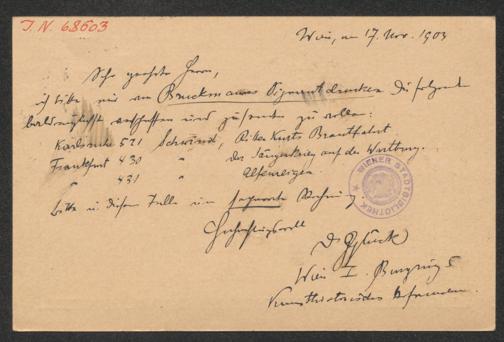 I. N. 68603
Wien, am 17. Nov. 1903
Sehr geehrter Herr,
ich bitte mir von Bruckmanns Pigmentdrucken die folgenden
baldmöglichst verschaffen und zusenden zu wollen:
Karlsruhe 521 Schwind, Ritter Kurts Brautfahrt
Frankfurt 430 " Der Sängerkrieg auf der Wartburg.
" 431 " Elfenreigen.
Bitte in diesem Falle um separate Rechnung.
Hochachtungsvoll
Dr Glück
Wien I. Burgring 5
Kunsthistorisches Hofmuseum.
WIENER STADTBIBLIOTHEK